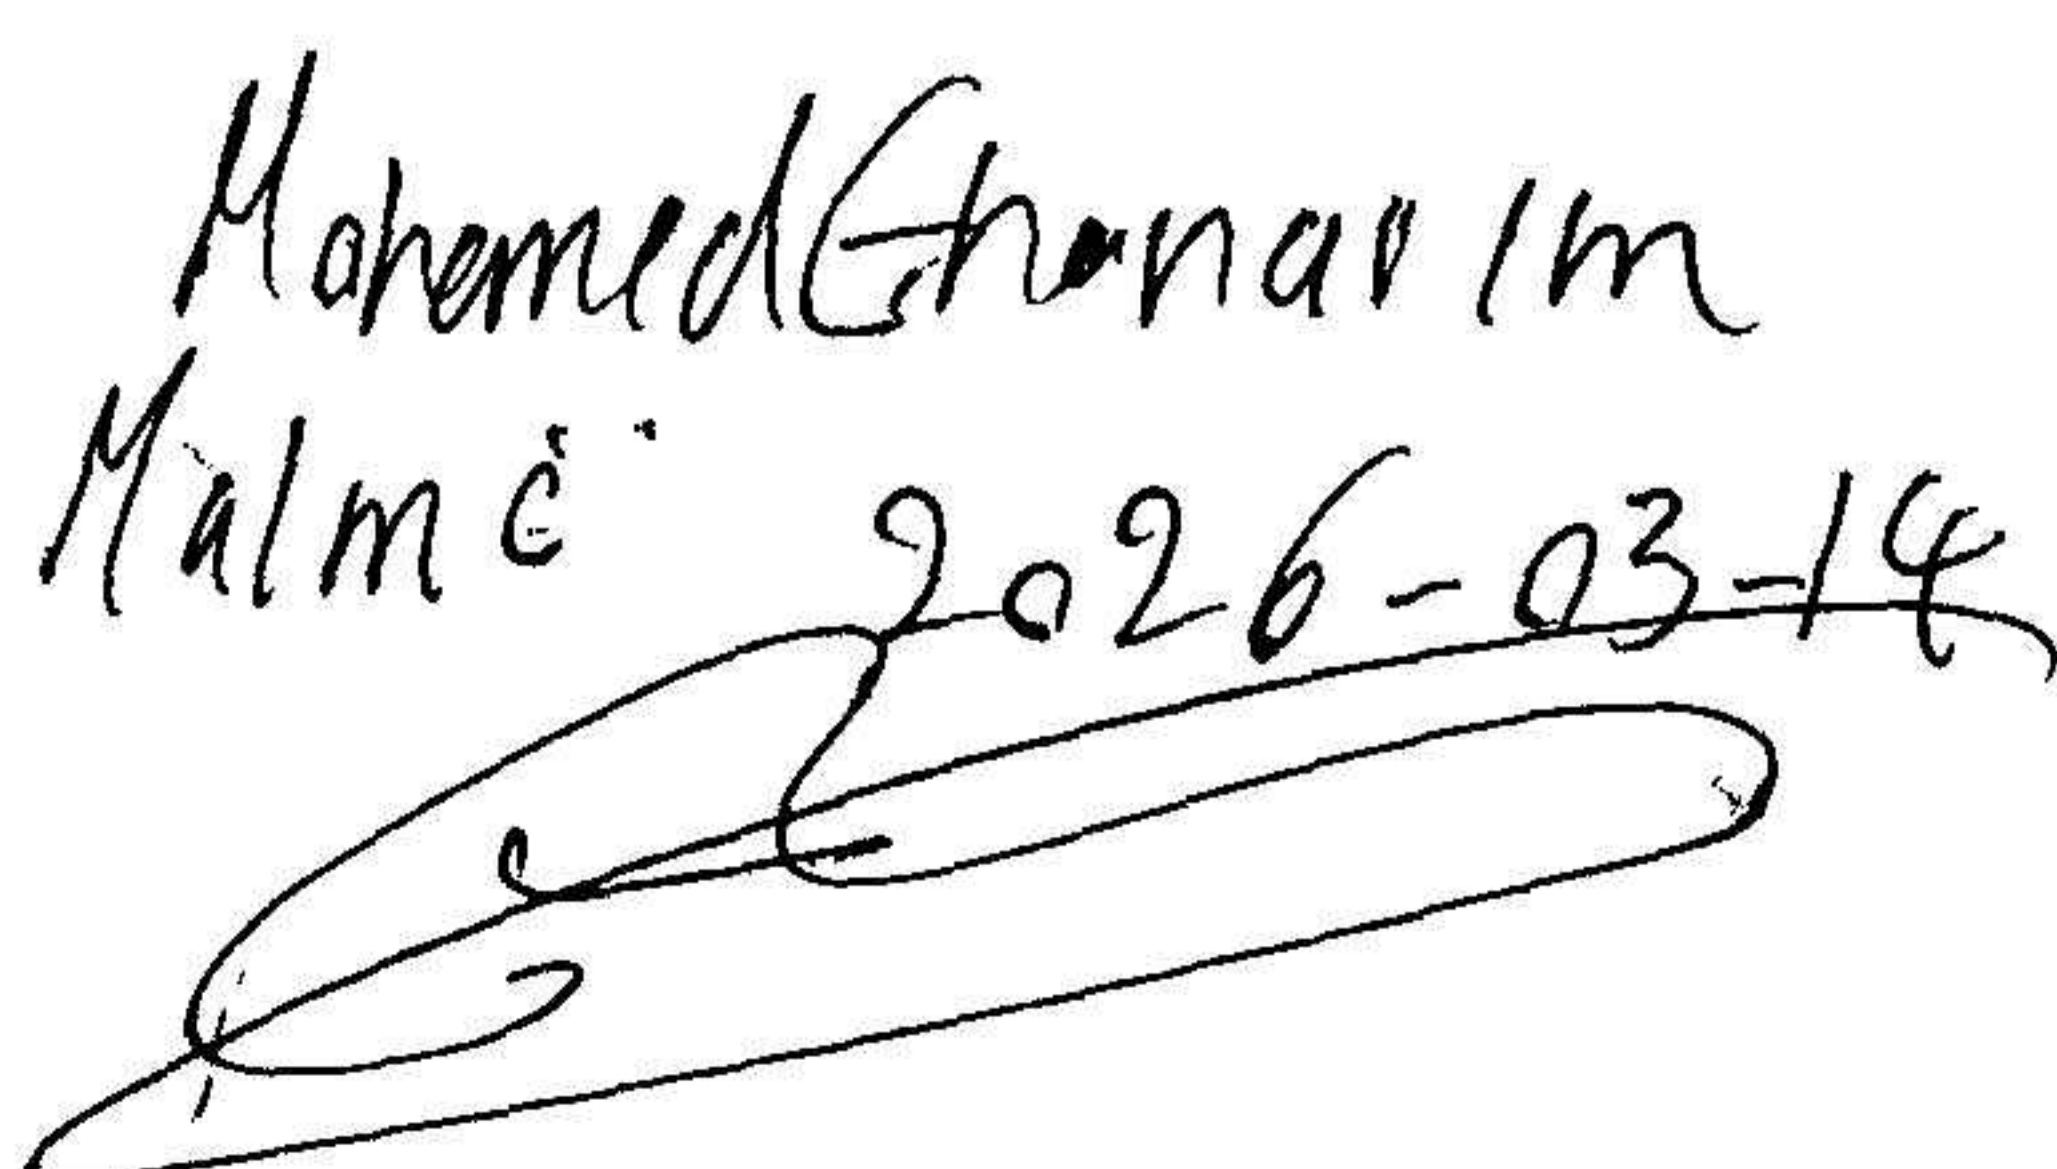 Mohemed Ghanaim
Malmö 2026-03-14